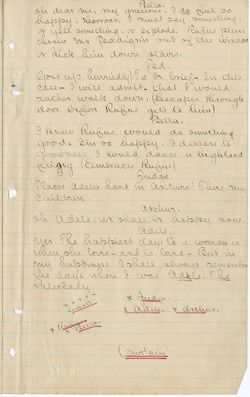 Bella.
Oh dear me, my gracious. I do feel so
happy. I must say something
or yell something or explode. Rufus please
throw Mr out of the window
or kick him down stairs.
Ted.
(Gets up hurriedly) To be brief - In this
case - I will admit - that I would
rather walk down. (Escapes through
door before Rufus gets to him)
Bella.
I knew Rufus would do something
good. I'm so happy. I declare to
goodness I could dance a highland
fling (Embraces Rufus)
Judge.
Places Adele's hand in Archers! Take her my
children.
Archer.
Oh Adele, us share is happy now.
Adele.
Yes. The happiest days to a woman is
when she loves - and is loved - But in
my happiness, I shall always remember
the days when I was Adele. The
x Judge.
x Adele. x Archer.
x Rufus
x Bella
(Curtain)